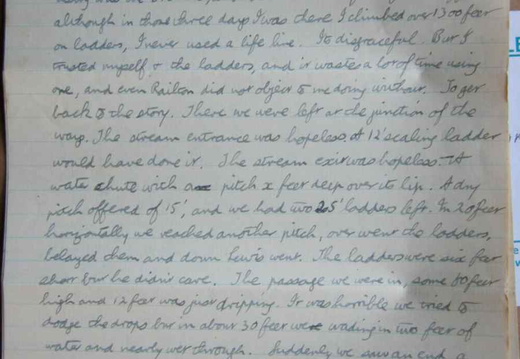 although in those three days I was there I climbed over 1300 feet
on ladders, I never used a life line. Its disgraceful. But I
trusted myself & the ladders, and it wastes a lot of time using
one, and even Railton did not object to me doing without. To get
back to the story. There we were left at the junction of the
way. The stream entrance was hopeless. A 12' scaling ladder
would have done it. The stream exit was hopeless. - A
water chute with a pitch x feet deep over its lip. A dry
pitch offered of 15', and we had two 25' ladders left. In 20 feet
horizontally we reached another pitch, over went the ladders,
belayed them and down Lewis went. The ladders were six feet
short but he didn't care. The passage we were in, some 60 feet
high and 12 feet was just dripping. It was horrible we tried to
dodge the drops but in about 30 feet were wading in two feet of
water and nearly wet through. Suddenly we saw an end
LE